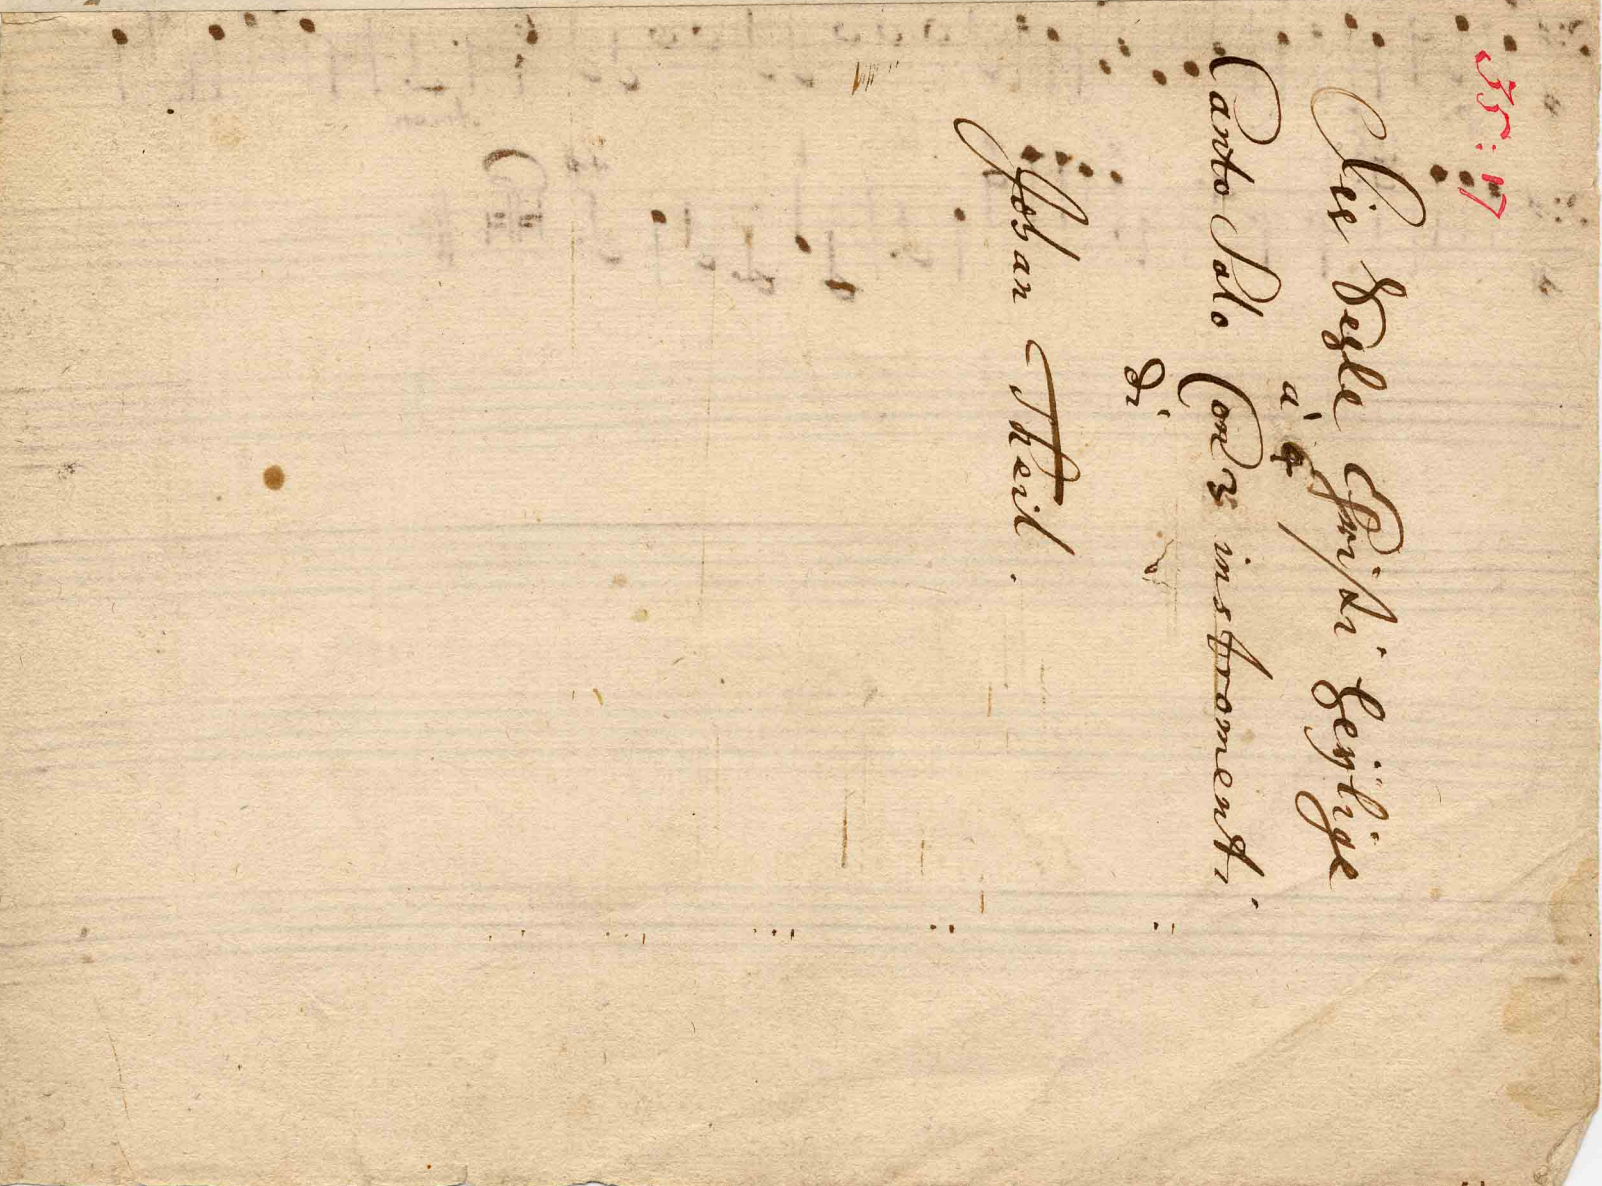 35:17
Die Seele Christi heÿlige
à 4
Canto Solo Con 3 instromenti
di
Johan Theil.